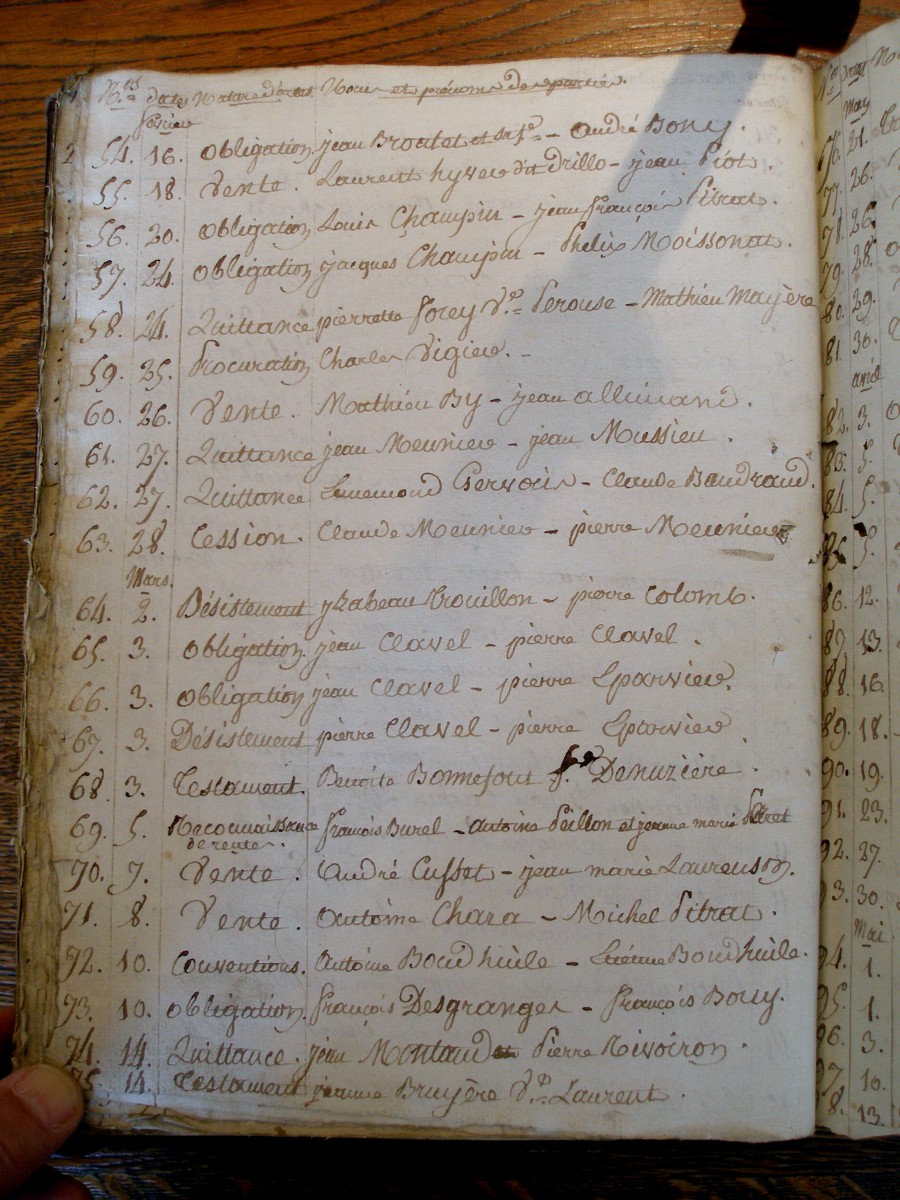 N.os date Nature d'actes Noms et prénoms des parties.
février
54. 16. Obligation jean Broalet et sa fe. - André Bony.
55. 18. Vente. Laurent hyver dit Drillo - jean Piot.
56. 20. Obligation Louis Champin - jean françois Pitrat.
57. 24. Obligation jacques Champin - Phelix Moissonat.
58. 24. Quittance pierrette forey Ve. Perouse - Mathieu Mayère
59. 25. Procuration Charles Vigier. -
60. 26. Vente. Mathieu By - jean allemand.
61. 27. Quittance jean Meunier - jean Mussieu.
62. 27. Quittance Ennemond Gervais - Claude Baudrand.
63. 28. Cession. Claude Meunier - pierre Meunier
Mars.
64. 2. Désistement yzabeau Trouillon - pierre Colomb.
65. 3. Obligation. jean Clavel - pierre Clavel.
66. 3. Obligation jean Clavel - pierre Eparvier.
67. 3. Désistement pierre Clavel - pierre Eparvier
68. 3. Testament. Benoite Bonnefont fe. Denuzière.
69. 5. Reconnaissance françois Burel - Antoine Peillon et jeanne marie
de rentes.
70. 7. Vente. André Cusset - jean marie Laurenson.
71. 8. Vente. Antoine Chara - Michel Pitrat.
72. 10. Conventions. Antoine Boudhuile - Etienne Boudhuile.
73. 10. Obligation. françois Desgranges - françois Bouy.
74. 14. Quittance. jean Montaud et Pierre Rivoiron.
75. 14. Testament jeanne Bruyère Ve. Laurent.
may
76. 21.
77. 26.
78. 26.
79. 28.
80. 29.
81. 30.
avril
82. 3.
83. 5.
84. 5.
85. 5.
86. 12.
87. 13.
88. 16.
89. 18.
90. 19.
91. 23.
92. 27.
93. 30.
Mai
94. 1.
95. 1.
96. 3.
97. 10.
8. 13.